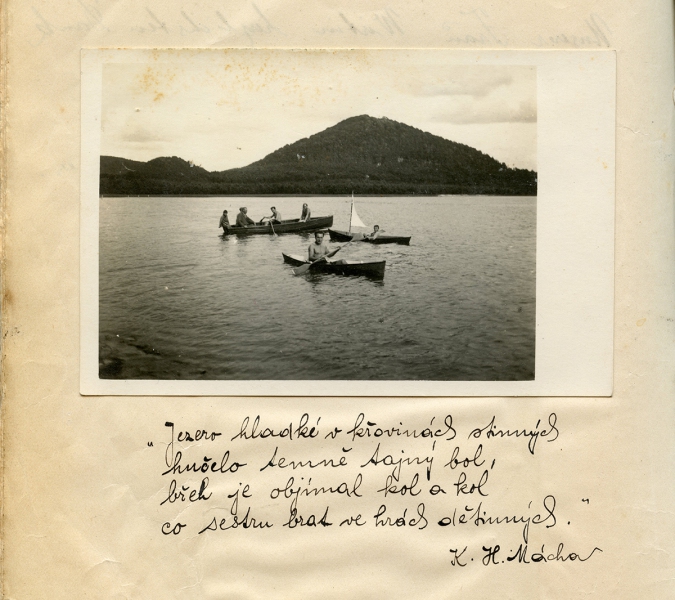 „Jezero hladké v křovinách stinných
hučelo temně tajný bol,
břeh je objímal kol a kol
co sestru brat ve hrách dětinných."
K. H. Mácha